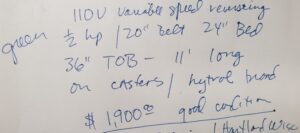 110V variable speed reversing
green ½ hp / 20" Belt 24" Bed
36" TOB - 11' long
on casters / hytrol brand
$ 1900.00 good condition
/ Hartland Wisc